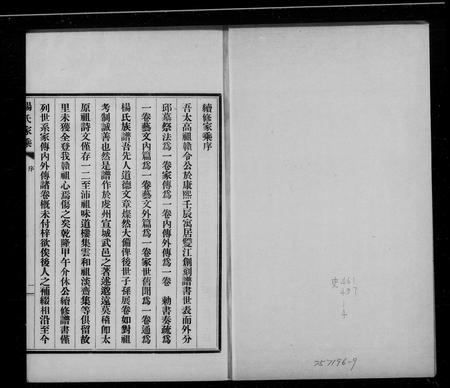 續修家乘序
吾太高祖贛令公於康熙壬辰寓居雙江創刻譜書世表而外分
邱墓祭法爲一卷家傳爲一卷內傳外傳爲一卷　勅書奏疏爲
一卷藝文內篇爲一卷藝文外篇爲一卷家世舊聞爲一卷通爲
楊氏族譜吾先人道德文章燦然大備俾後世子孫展卷如對祖
考制誠善也然是譜作於虔州宣城武邑之著述邈遠莫稽卽太
原祖詩文僅存一二至沛祖味道樓集雲和祖淡齋集等俱留故
里未獲全登我贛祖心焉傷之矣乾隆甲午介休公續修譜書僅
列世系家傳內外傳諸卷概未付梓欲俟後人之補綴相沿至今
楊氏家乘
序
一
史461
437
757196-9